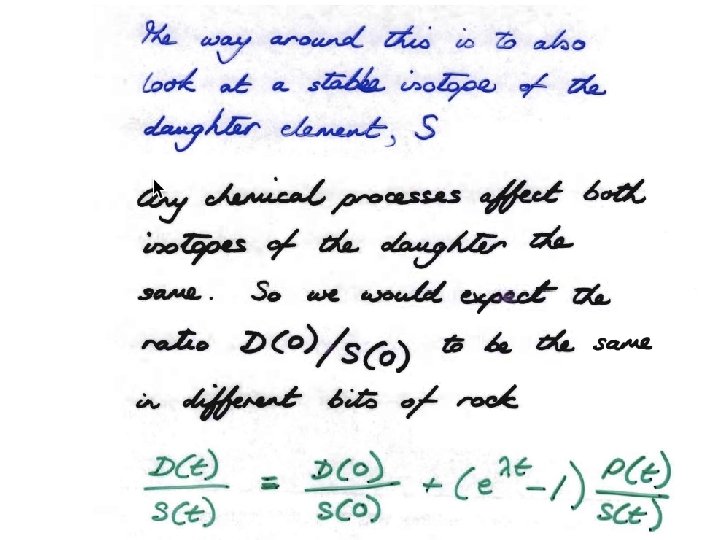 The way around this is to also
look at a stable isotope of the
daughter element, S
Any chemical processes affect both
isotopes of the daughter the
same. So we would expect the
ratio D(0)/S(0) to be the same
in different bits of rock
D(t)/S(t) = D(0)/S(0) + (e^λt - 1) P(t)/S(t)